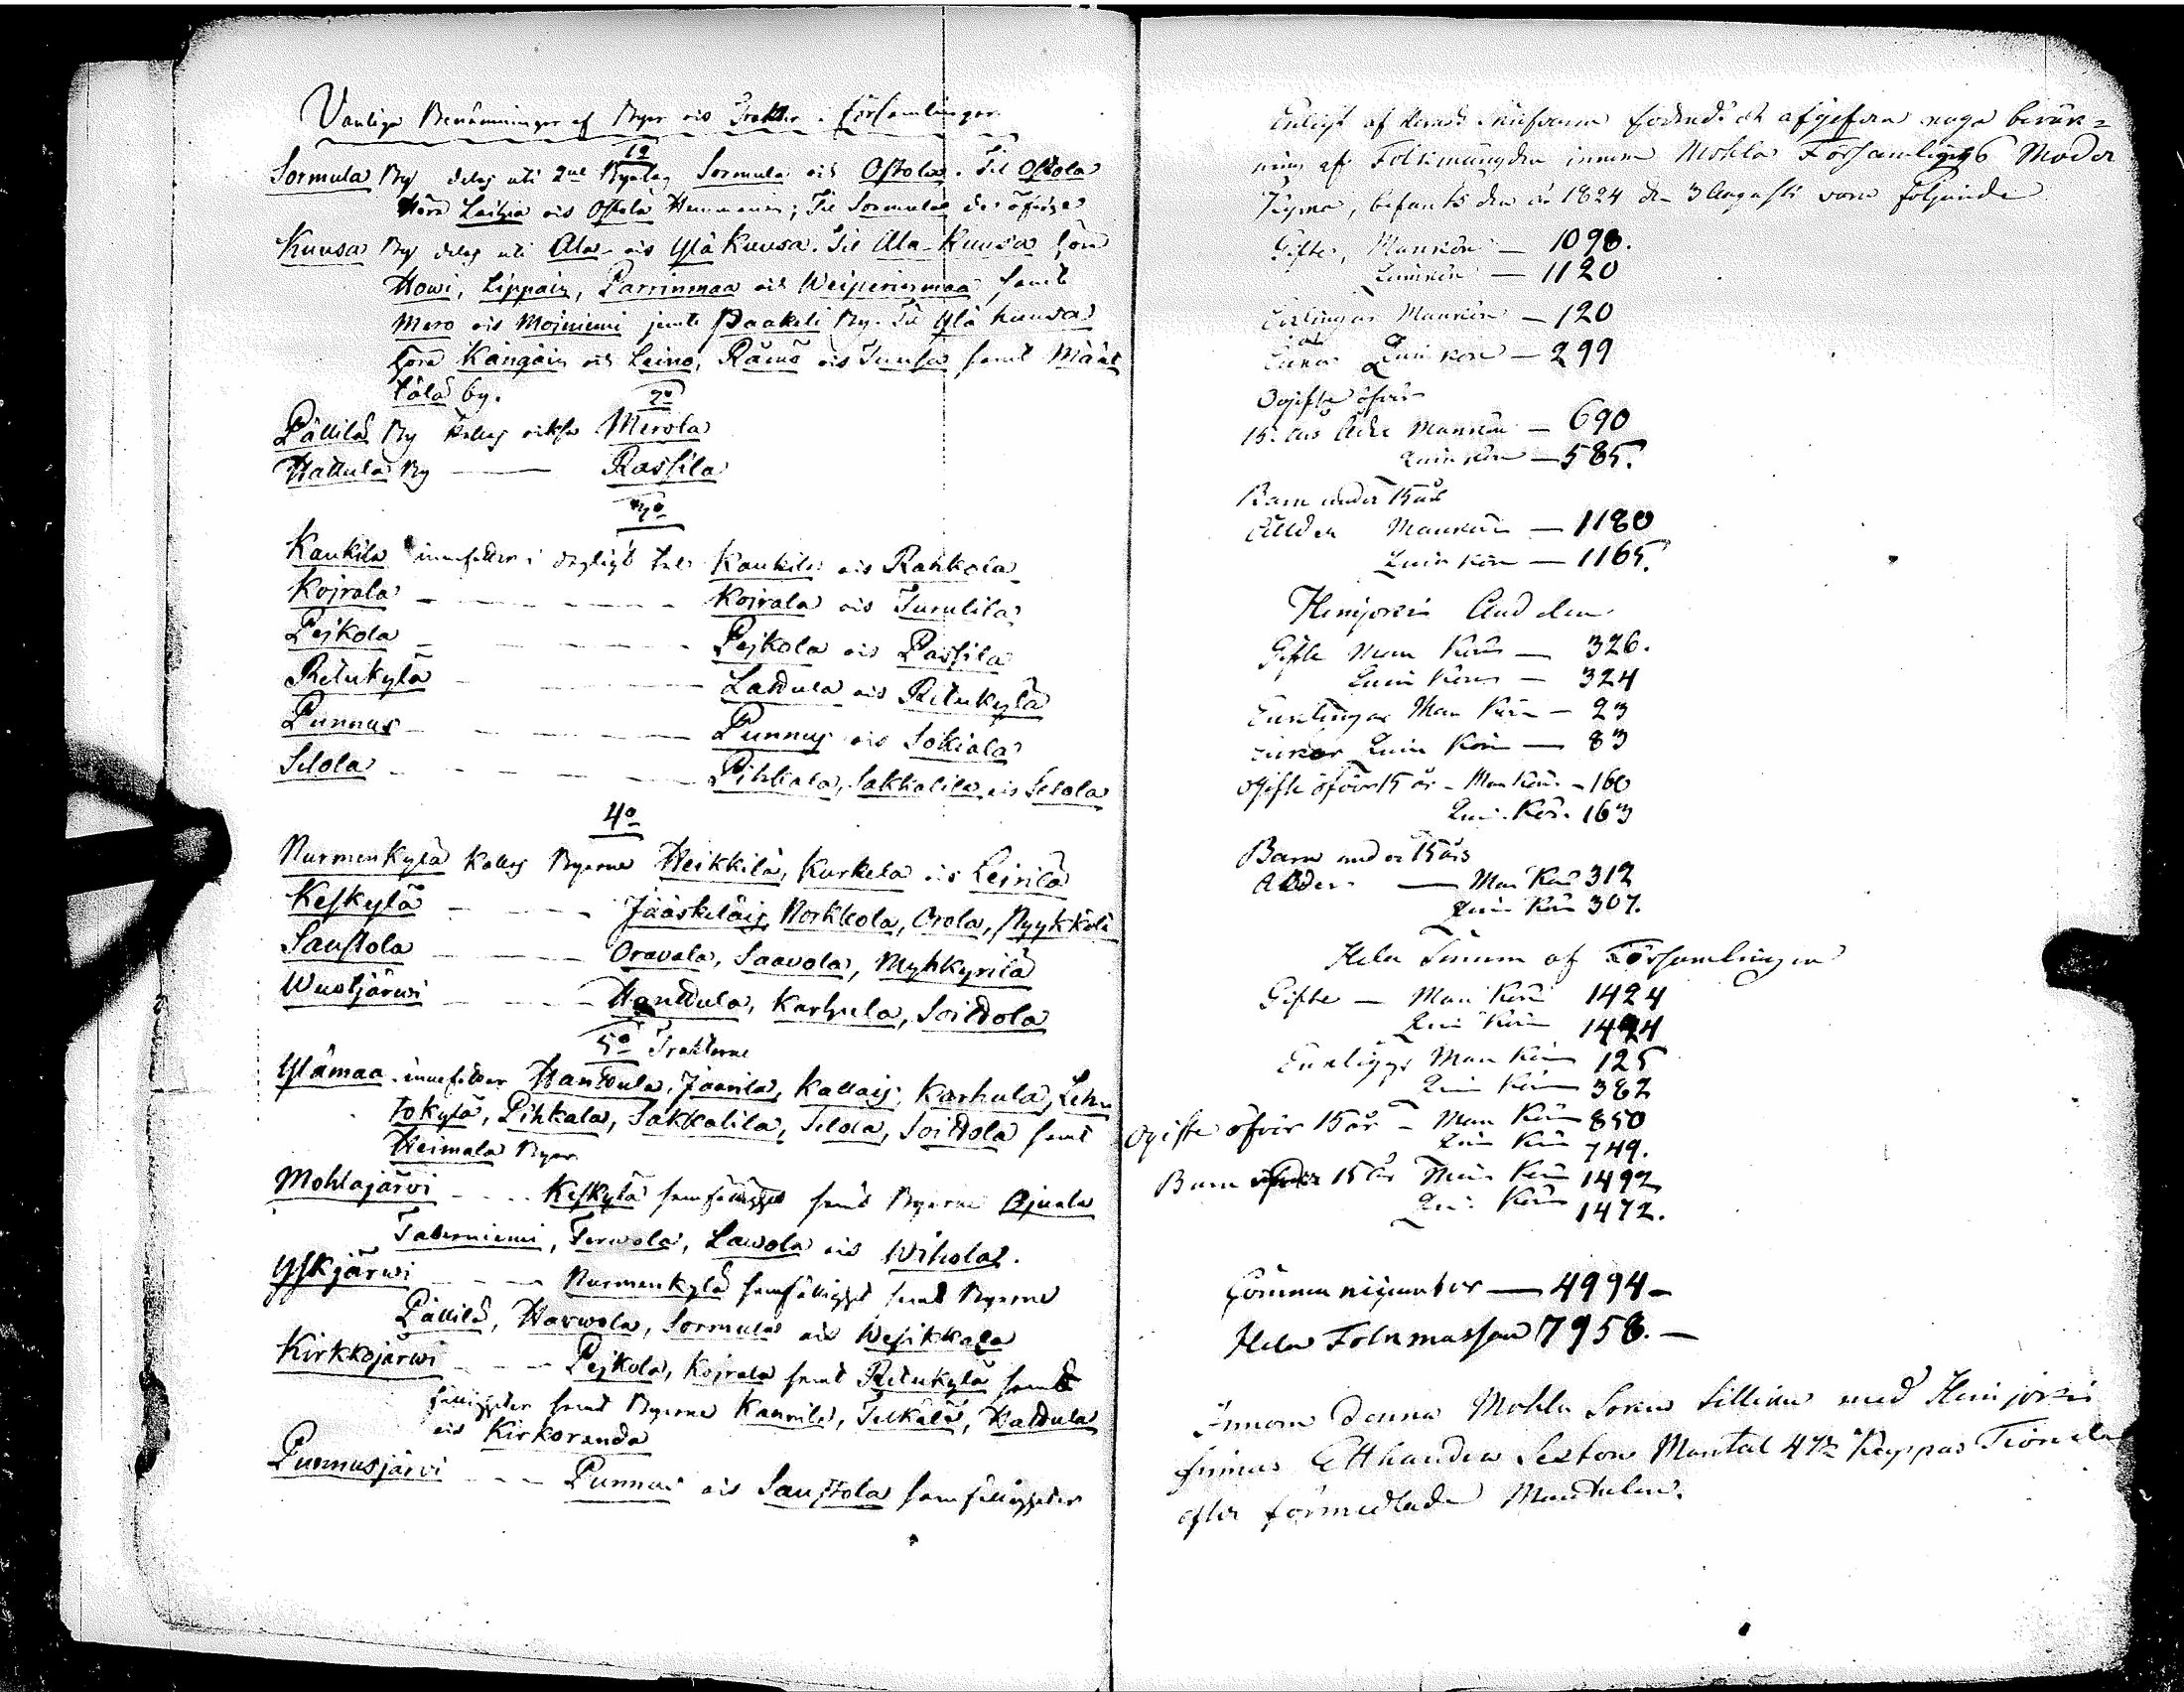 Vanliga Benämningar af Byar och Trakter i församlingen
1o
Sormula By delas uti 2ne Byalag Sormula och Ostola. Til Ostola
höra Laitzia och Ostola Hemmanen; Til Sormula de öfriga
Kuusa By delas uti Ala- och Ylä Kuusa. Til Ala-Kuusa höra
Howi, Lippain, Parrinmaa och Weiperinmaa samt
Mero och Mojniemi jemte Paakeli By. Til Ylä kuusa
höra Kangain och Leino, Rämö och Tuusa samt Määt
tälä by.
2o
Pällilä By kallas också Merola
Hattula By — Rassila
3o
Kaukila innefattar i dagligt tal Kaukila och Rahkola
Kojrala - - - - Kojrala och Turulila
Pejkola - - - - Pejkola och Passila
Retukylä - - - - Lattula och Retukylä
Punnus - - - - Punnus och Sokiala
Selola - - - - Pihkala, Sakkalila och Selola
4o
Nurmenkylä kallas Byarne Heikkilä, Kurkela och Leirilä
Keskylä - - - - Jääskeläis, Norkkola, Orola, Nyykköli
Saustola - - - - Oravala, Saavola, Myhkyrilä
Wuotjärwi - - - - Hanttula, Karhula, Soittola
5o Trakterne
Ylämaa innefattar Hanttula, Jaarila, Kallais, Karhula, Leh
tokylä, Pihkala, Sakkalila, Selola, Soittola samt
Heimala Byar
Mohlajärvi - - - - Keskylä samfällighet samt Byarne Ojuala
Taberniemi, Terwola, Lawola och Wihola.
Yskjärwi - - - Nurmenkylä samfällighet samt Byarne
Pällilä, Harwola, Sormula och Wesikkala
Kirkkojärwi - - - Pejkola, Kojrala samt Retukylä sam
fälligheter samt Byarne Kaurila, Telkälä, Hattula
och Kirkoranda
Punnusjärvi - - - Punnus och Saustola samfälligheter
Enligt af fodrad och afgifven noga beräk=
ning af Folkmängden innom Mohla Församlings Moder
Kyrka, befants den år 1824 den 3 Augusti vara följande
Gifta, Mankön — 1098.
Quinkön — 1120
Enklingar Mankön — 120
Enkor Quinkön — 299
Ogifta öfver
15 års Ålder Mankön — 690
Quinkön — 585.
Barn under 15 års
Ålder Mankön — 1180
Quinkön — 1165.
Heinjoki Anddelen
Gifte Man Kön — 326.
Quin Kön — 324
Enklingar Man Kön — 23
Enkor Quin Kön — 83
Ogifte öfver 15 år - Man Kön - 160
Quin Kön - 163
Barn under 15 års
Ålder — Man Kön 312
Quin Kön 307.
Hela Summan af Församlingen
Gifte — Man Kön 1424
Quin Kön 1424
Enklingar Man Kön 125
Quin Kön 382
Ogifte öfver 15 år - Man Kön 850
Quin Kön 749.
Barn under 15 år Man Kön 1492
Quin Kön 1472.
Communicanter — 4994 —
Hela Folkmassan 7958. —
Innom denna Mohla Soken tillika med Heinjoki
finnas Etthundra Sexton Mantal 4 1/2 Kappas Tionde
efter förmedlade Mantalen.